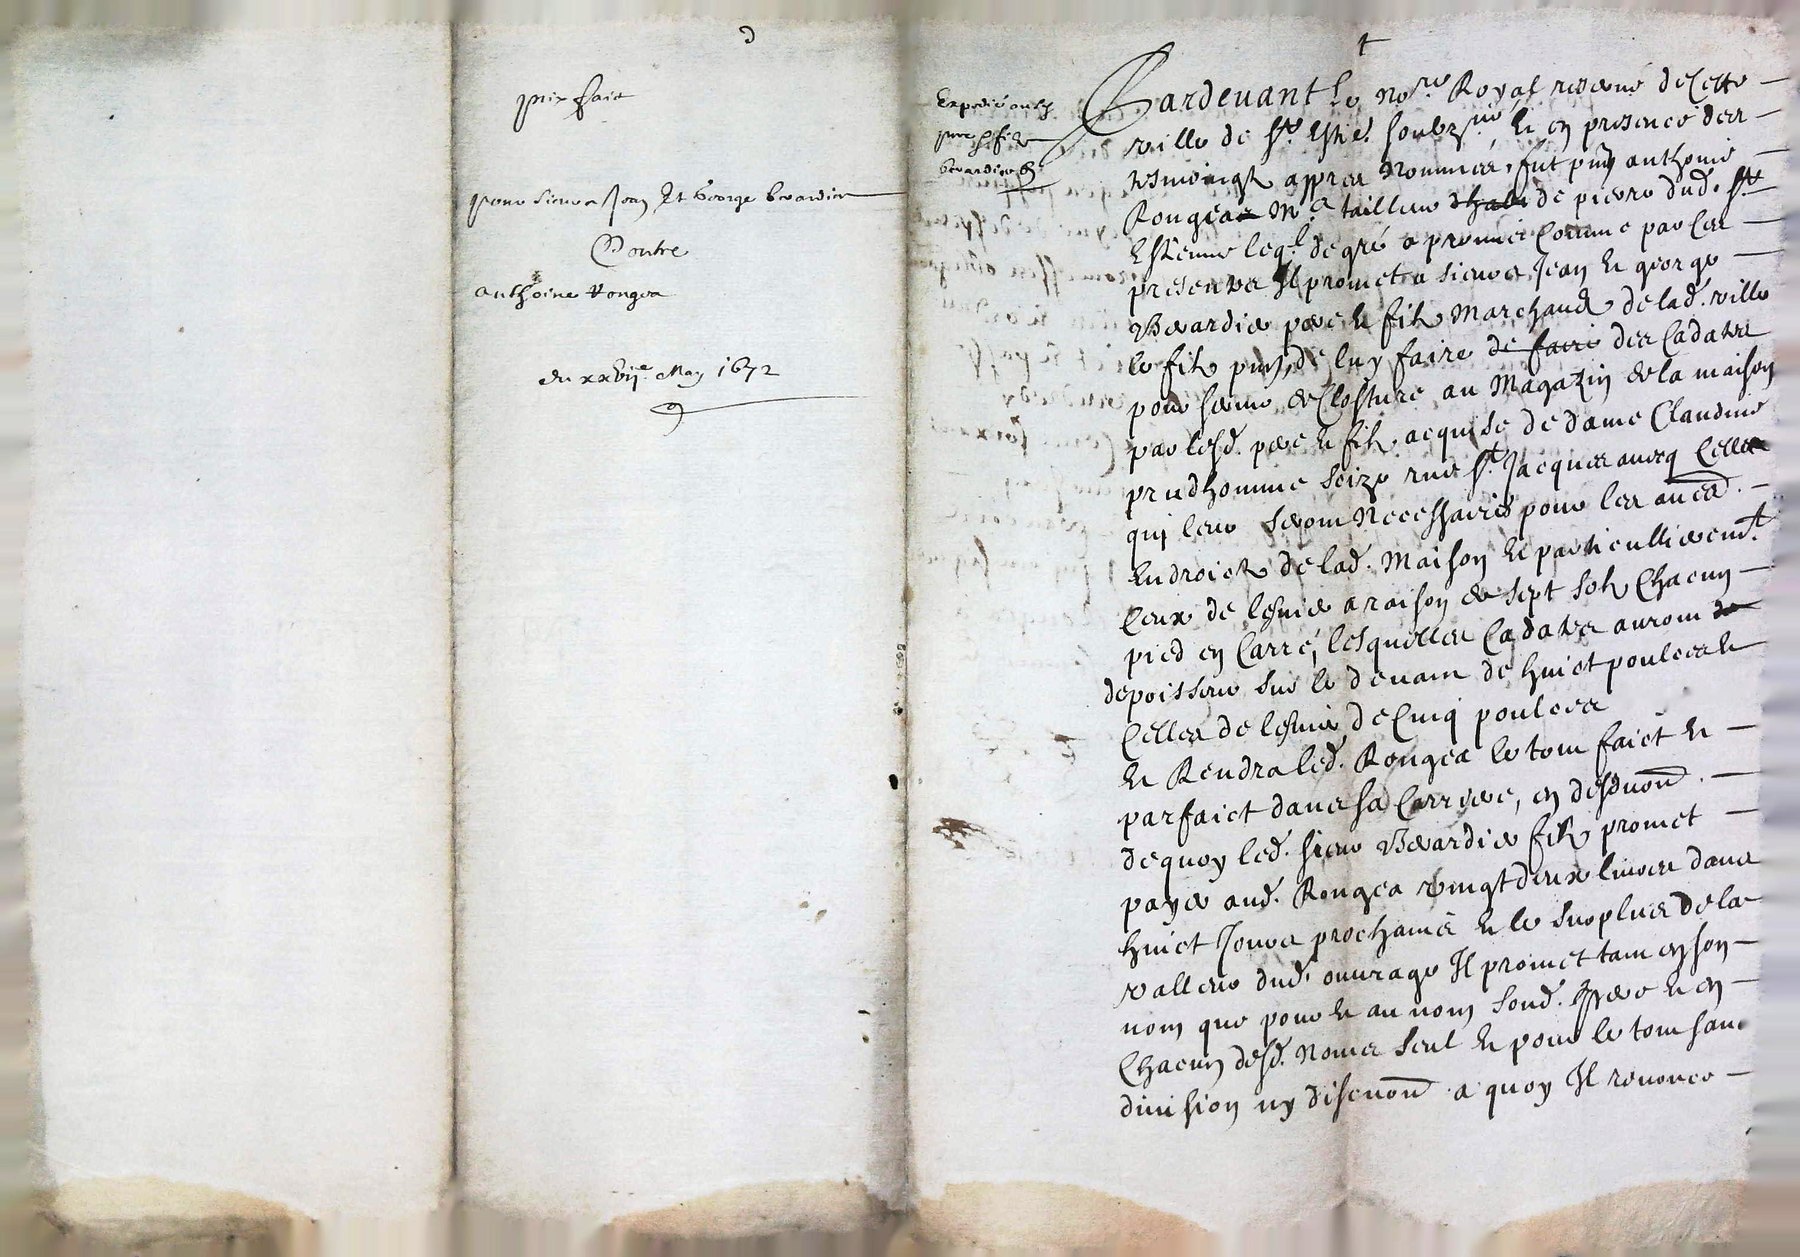 prix faict
pour sieurs Jean Et George Berardier
Contre
anthoine Rongea
du xxvije. May 1672
Expedié aud.
sr fils
berardier
Pardevant le Nore Royal reservé de Cette
ville de St. Estie. soubzné et en presence des
tesmoingtz appres Nommés, fut pnt anthoine
Rongeas Me tailleur dhabi de pierre dud. St
Estienne leql. de gré a promis Comme par Ces
presentes Il promet a sieurs Jean et george
Berardier pere et filz Marchandz de lad. ville
le filz pnt, de luy faire de faire des Cadatres
pour servir de Closture au Magazin de la maison
par lesd. pere et filz acquise de dame Claudine
prudhomme seize rue St. Jacques avecq Celles
qui leur seront Necessaires pour les aues.
Endroictz de lad. Maison et particullieremt.
Ceux de lesvier a raison de sept solz Chacun
pied en Carré, lesquelles Cadatres auront de
depoisseur sur le devant de huict poulces et
Celles de lesvier de Cinq poulces
Et Rendra led. Rongea le tout faict et
parfaict dans sa Carriere, en desduon.
dequoy led. sieur Berardier filz promet
payer aud. Rongea vingtdeux livres dans
huict Jours prochains et le surplus de la
valleur dud. ouvrage Il promet tant en son
nom que pour et au nom soud. pere et en
Chacun desd. Noms seul et pour le tout sans
division ny discuon. a quoy Il renonce